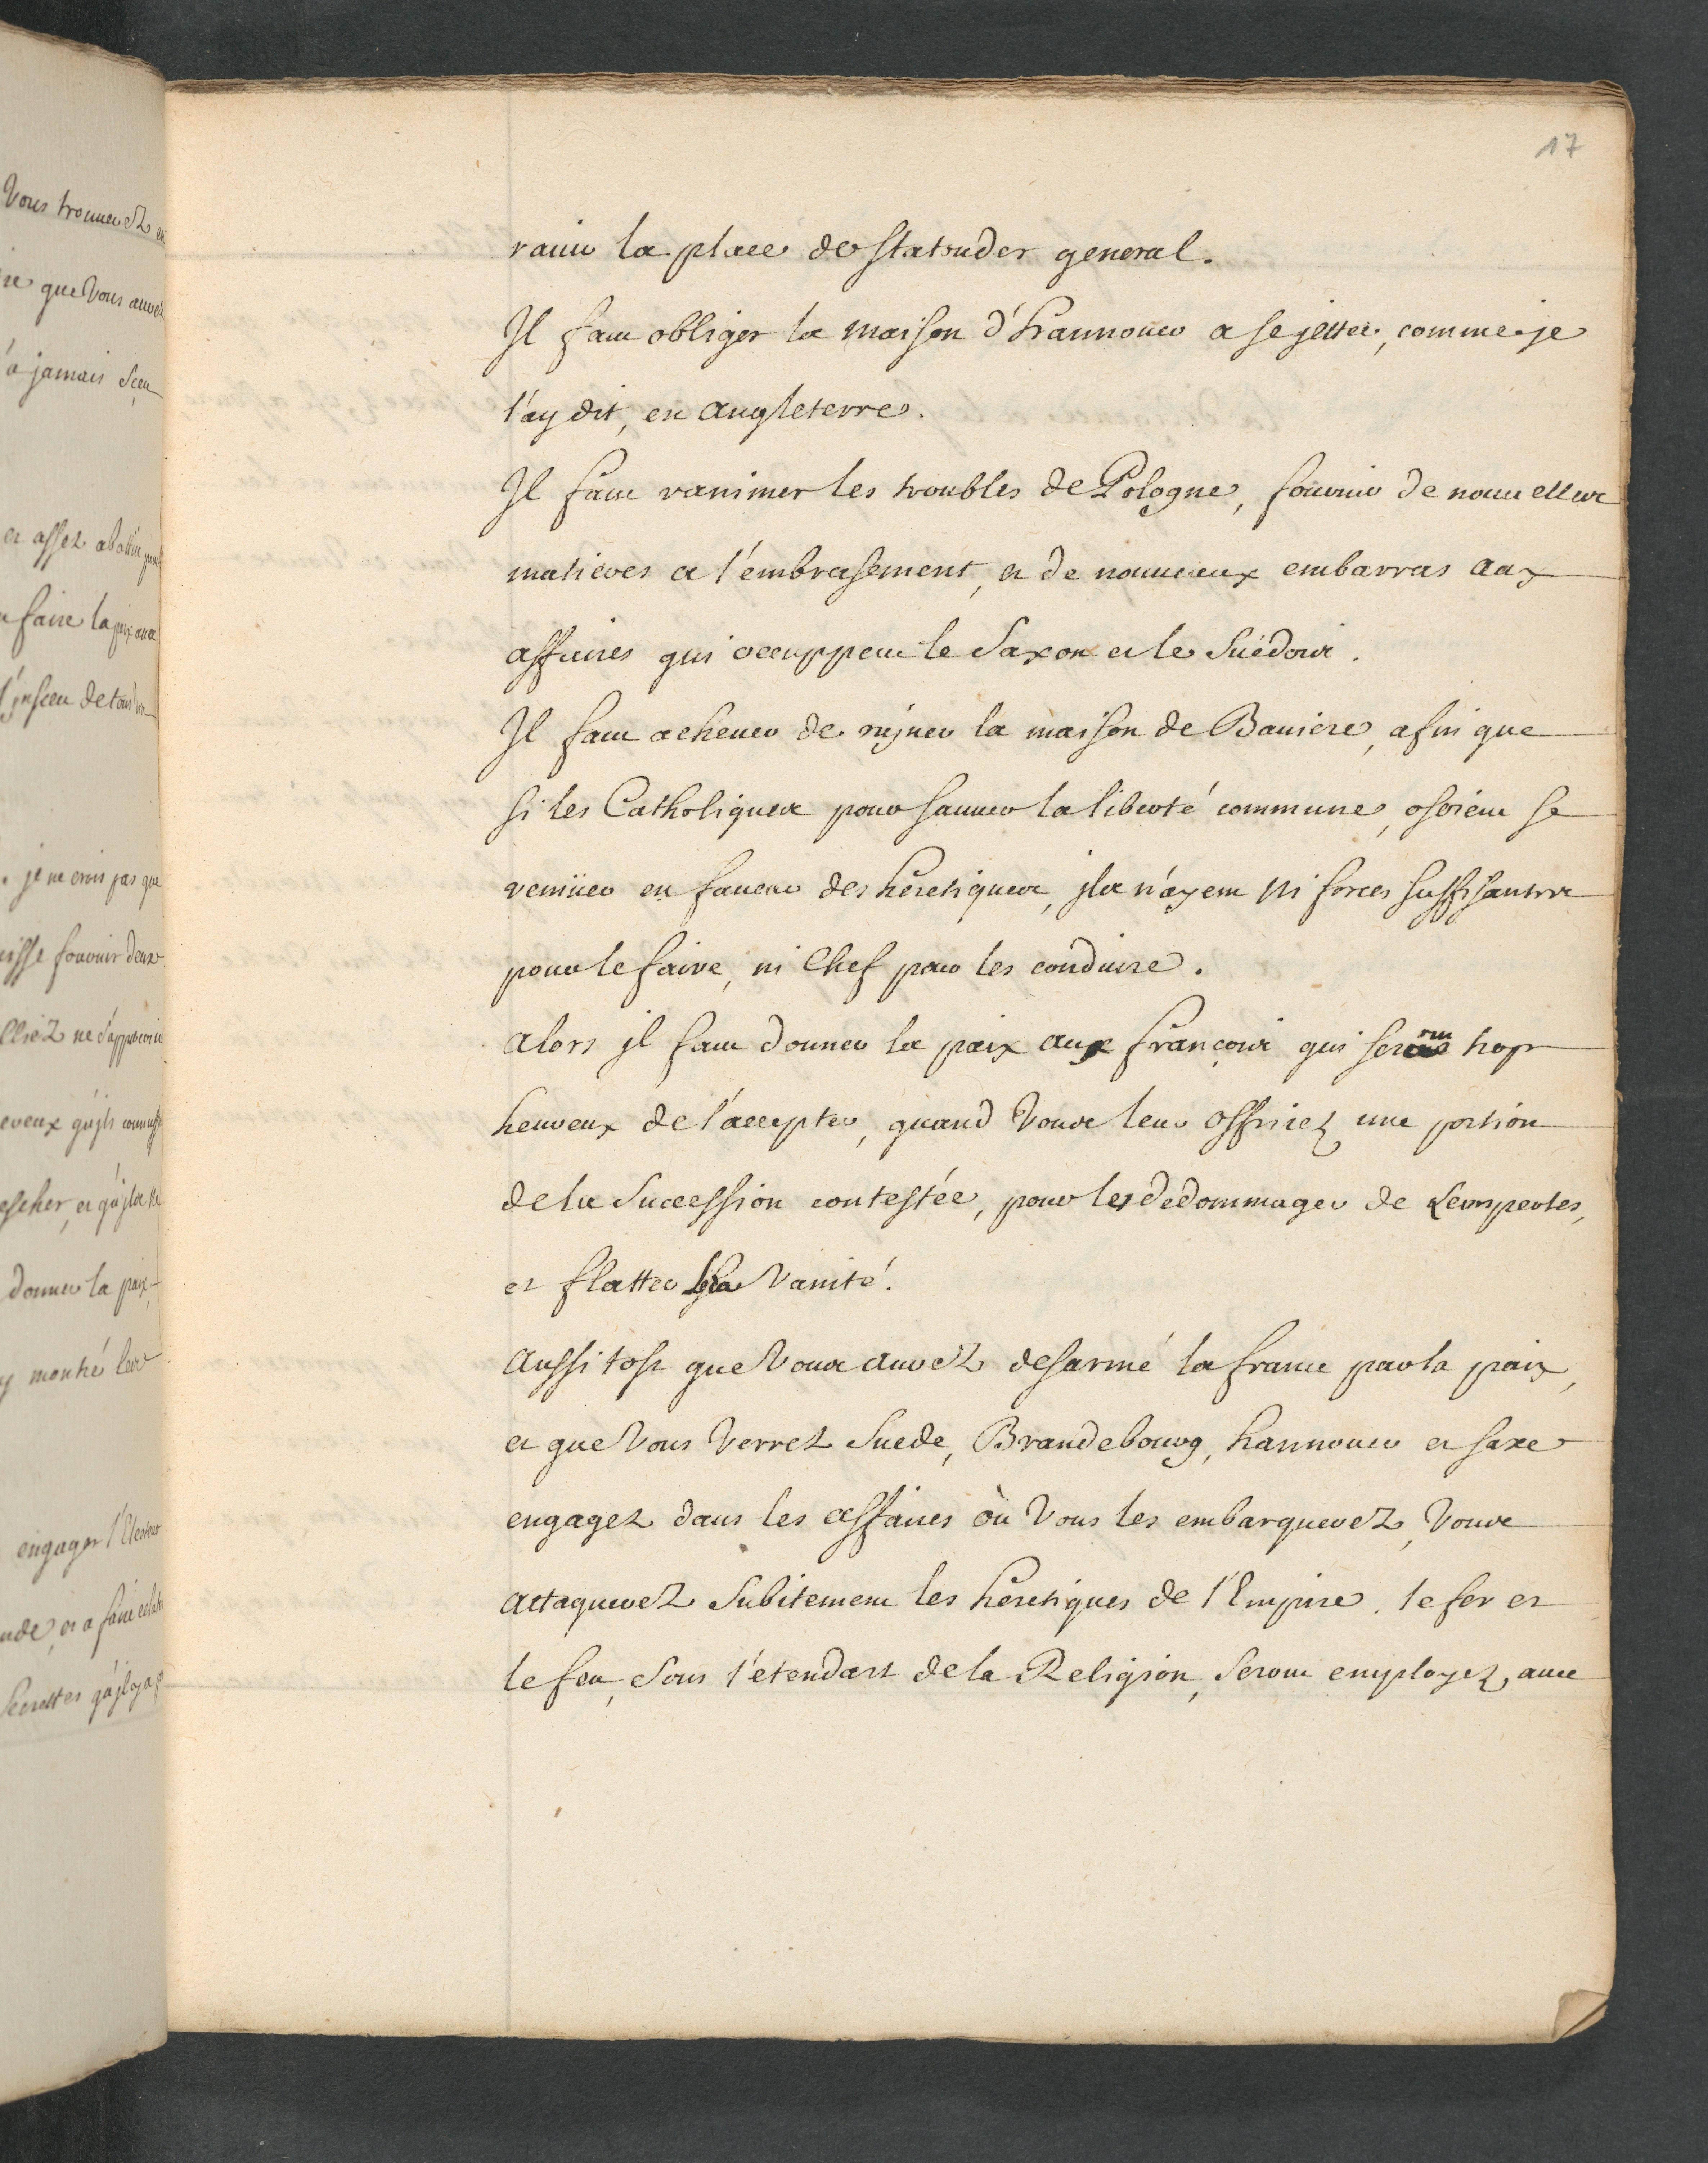 17
ravir la place de statouder general.
Il faut obliger la maison d'hannouer a se jetter, comme je
l'ay dit, en angleterre.
Il faut ranimer les troubles de Pologne, fournir de nouuelles
matieres a l'embrasement, et de nouueaux embarras aux
affaires qui occuppent le Saxon et le Suédois.
Il faut acheuer de rujner la maison de Bauiere, afin que
si les Catholiques pour sauuer la liberté commune, osoient se
remüer en faueur des héretiques, jls n'ayent ni forces suffisantes
pour le faire, ni Chef pour les conduire.
alors jl faut donner la paix aux françois qui seront trop
heureux de l'accepter, quand Vous leur offririez une portion
de la Succession contestée, pour les dedommager de Leurs pertes,
et flatter la Vanité.
aussi tost que Vous aurez desarmé la france par la paix,
et que Vous Verrez Suede, Brandebourg, hannouer et saxe
engagez dans les affaires où Vous les embarquerez, Vous
attaquerez Subitement les héretiques de l'Empire. le fer et
le feu, Sous l'étendart de la Religion, Seront employez, auec
Vous trouuerez
que Vous auez
a jamais Sçeu
et assez
faire la paix
je ne crois pas que
fournir deux
donner la paix
montré leur
engager l'Electeur